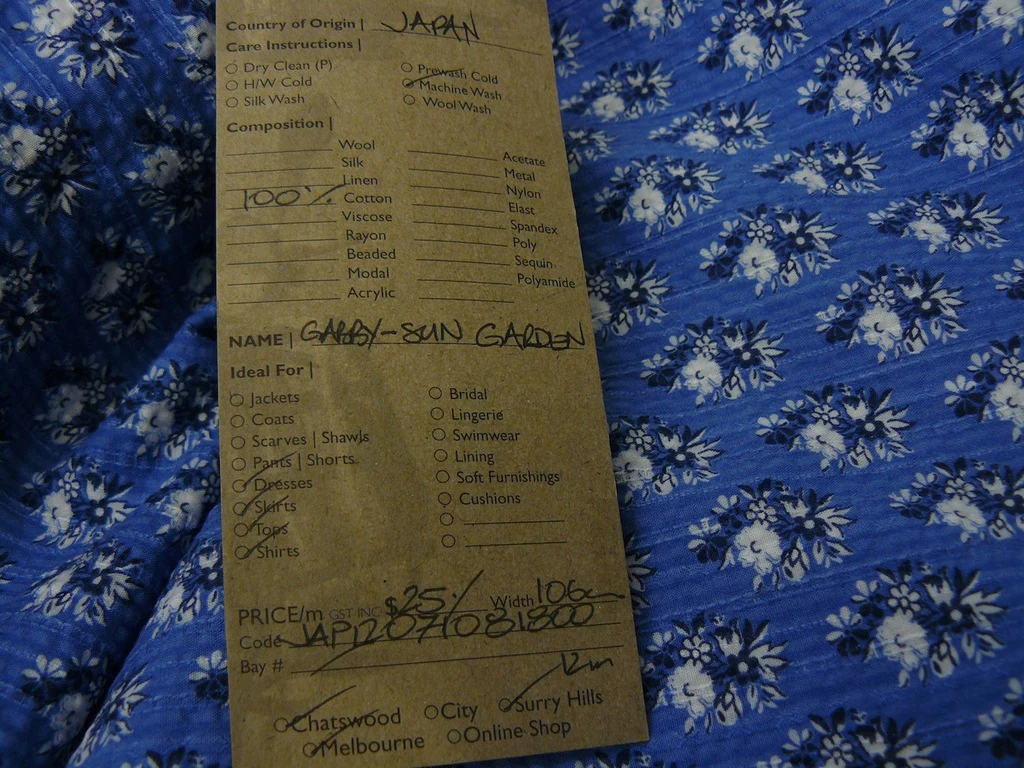 Country of Origin | JAPAN
Care Instructions |
Dry Clean (P)
H/W Cold
Silk Wash
Prewash Cold
Machine Wash
Wool Wash
Composition |
Wool
Silk
Linen
100% Cotton
Viscose
Rayon
Beaded
Modal
Acrylic
Acetate
Metal
Nylon
Elast
Spandex
Poly
Sequin
Polyamide
NAME | GABBY-SUN GARDEN
Ideal For |
Jackets
Coats
Scarves | Shawls
Pants | Shorts
Dresses
Skirts
Tops
Shirts
Bridal
Lingerie
Swimwear
Lining
Soft Furnishings
Cushions
PRICE/m GST INC $25/ Width 106cm
Code JAP12071081800
Bay # 12m
Chatswood City Surry Hills
Melbourne Online Shop